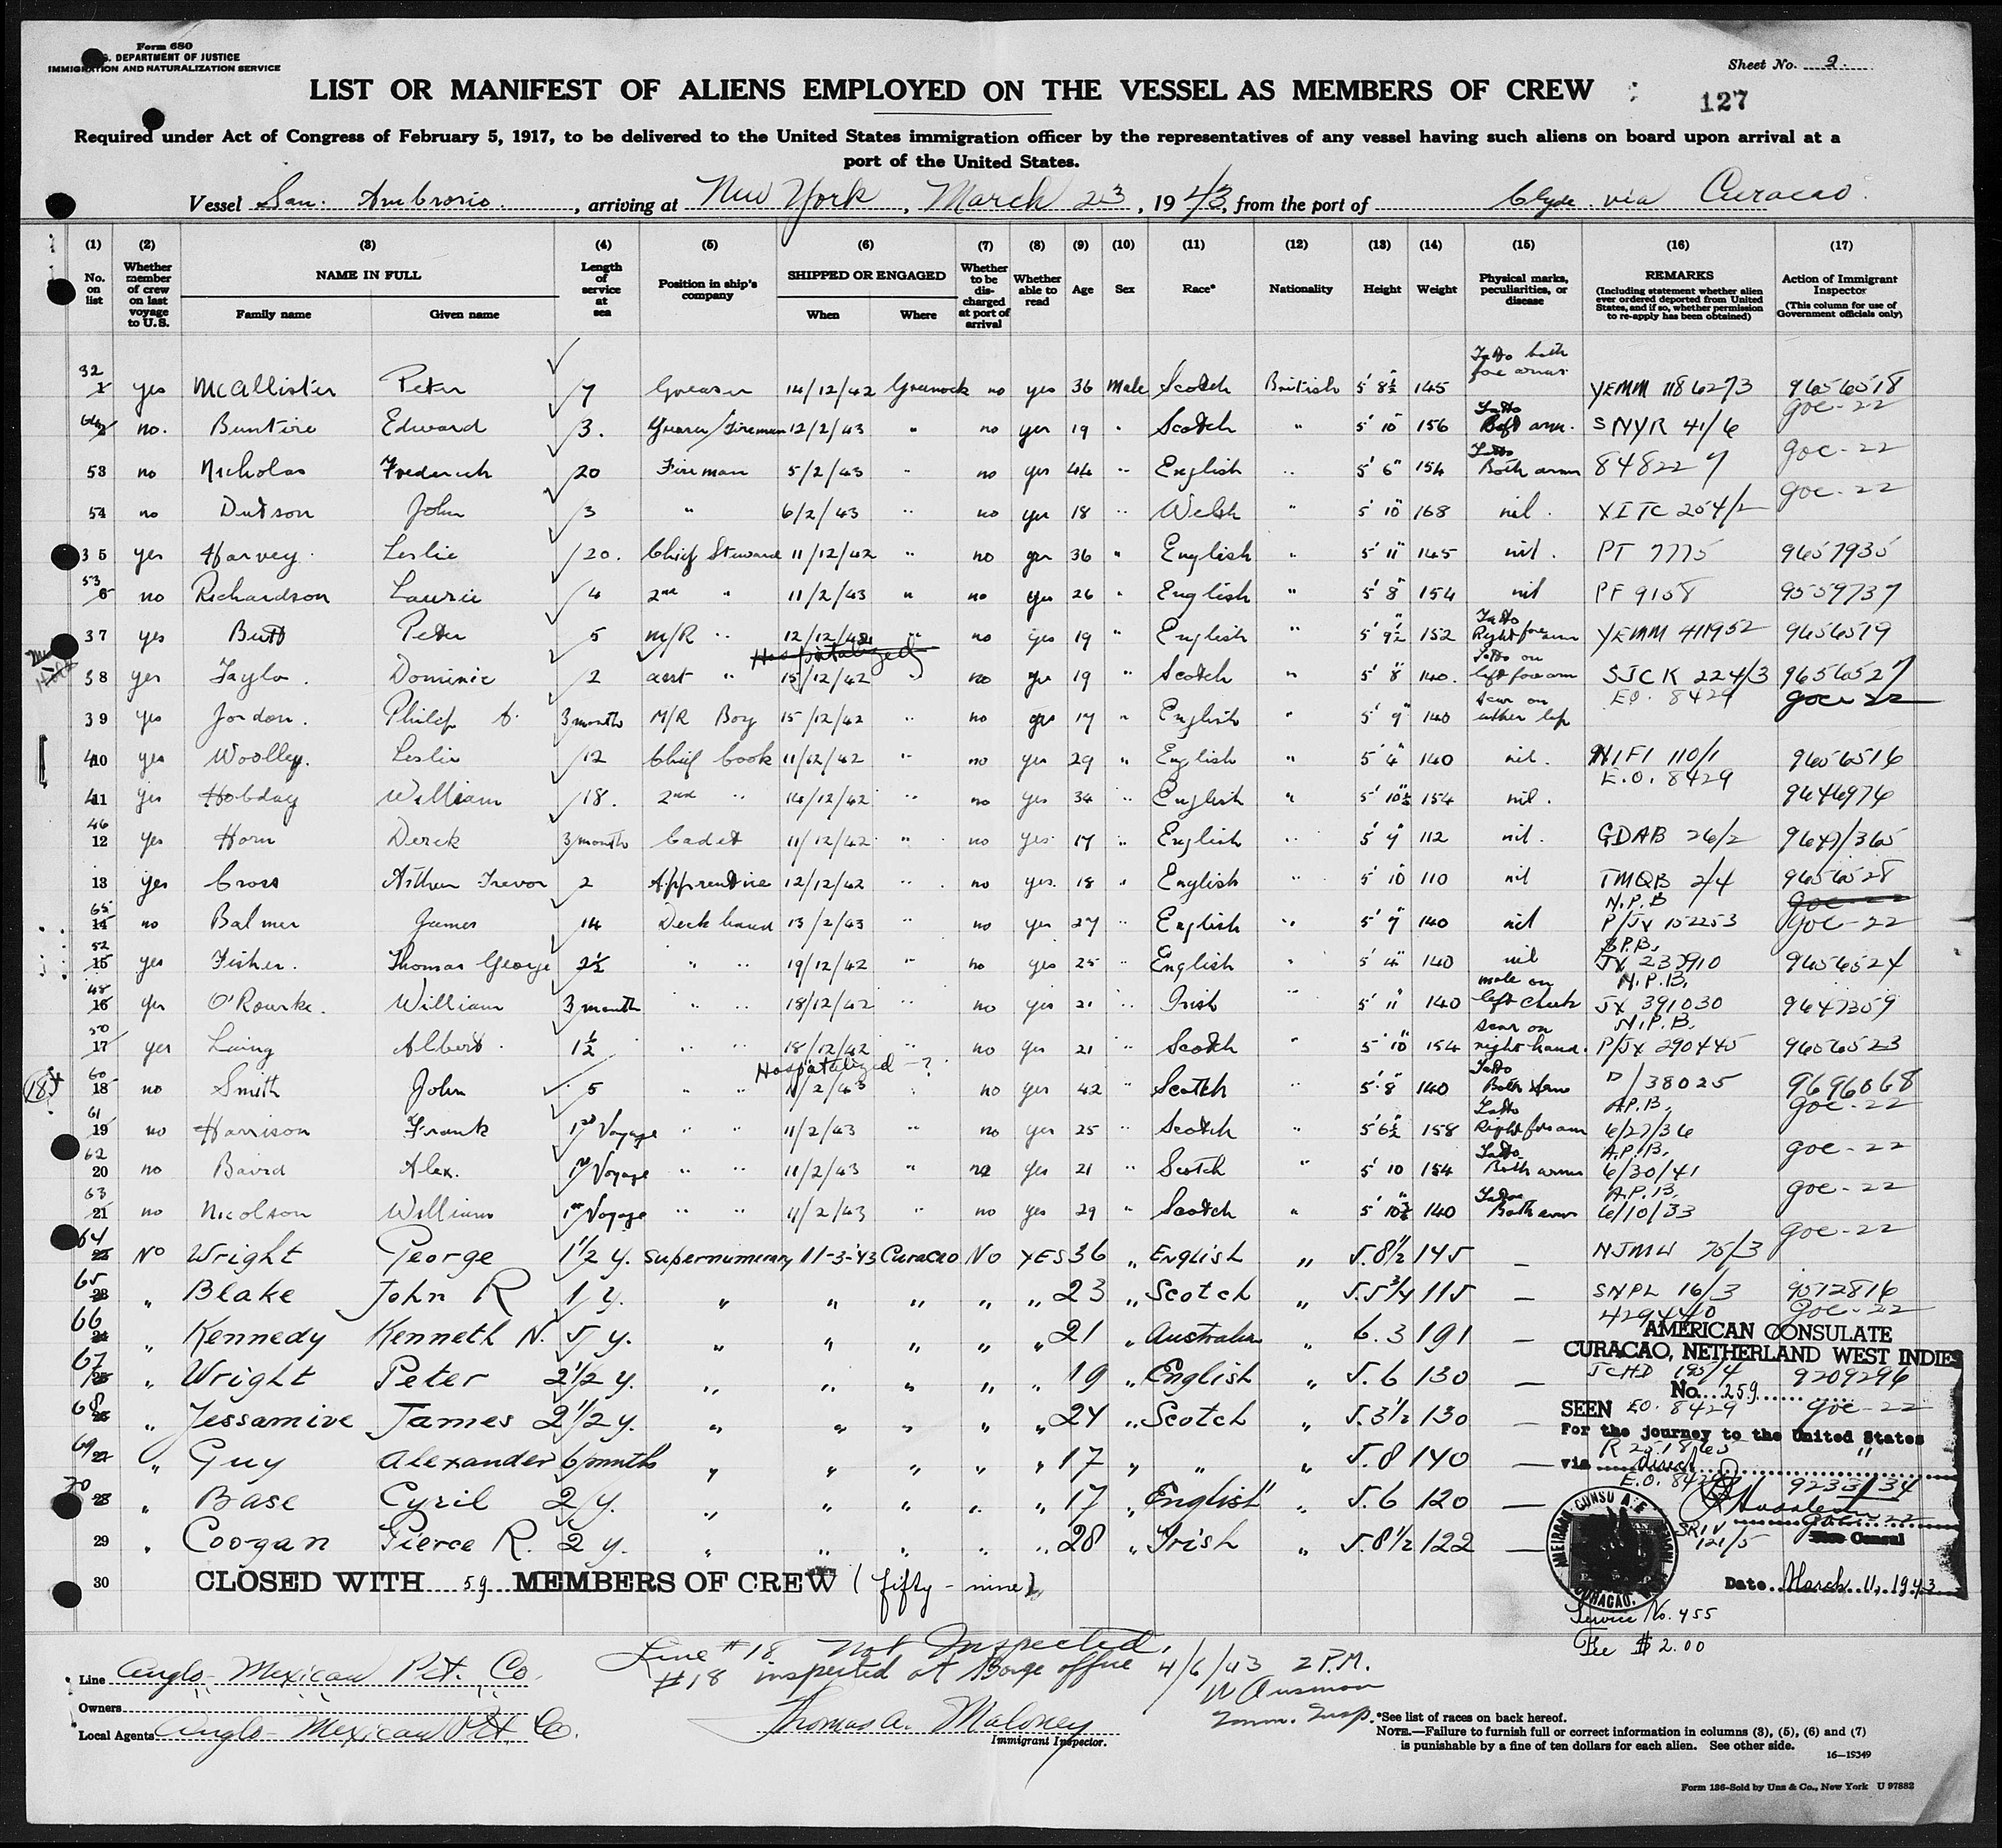 Form 680
U.S. DEPARTMENT OF JUSTICE
IMMIGRATION AND NATURALIZATION SERVICE
Sheet No. 2.
LIST OR MANIFEST OF ALIENS EMPLOYED ON THE VESSEL AS MEMBERS OF CREW
127
Required under Act of Congress of February 5, 1917, to be delivered to the United States immigration officer by the representatives of any vessel having such aliens on board upon arrival at a
port of the United States.
Vessel San. Ambrosio., arriving at New York, March 23, 1943, from the port of Clyde via Curacao.
(1) (2) (3) (4) (5) (6) (7) (8) (9) (10) (11) (12) (13) (14) (15) (16) (17)
No. on list
Whether member of crew on last voyage to U.S.
NAME IN FULL
Family name
Given name
Length of service at sea
Position in ship's company
SHIPPED OR ENGAGED
When
Where
Whether to be discharged at port of arrival
Whether able to read
Age
Sex
Race*
Nationality
Height
Weight
Physical marks, peculiarities, or disease
REMARKS
(Including statement whether alien ever ordered deported from United States, and if so, whether permission to re-apply has been obtained)
Action of Immigrant Inspector
(This column for use of Government officials only)
32 1 yes McAllister Peter 7 Greaser 14/12/42 Greenock no yes 36 Male Scotch British 5' 8½" 145 Tatto both fore arms YEMM 1186273 9656518
2 no. Buntire Edward 3. Greaser/Fireman 12/2/43 " no yes 19 " Scotch " 5' 10" 156 Tatto Left arm. SNYR 41/6 goc-22
53 no Nicholas Frederick 20 Fireman 5/2/43 " no yes 44 " English " 5' 6" 154 Tatto Both arms 848227 goc-22
54 no Dutson John 3 " 6/2/43 " no yes 18 " Welsh " 5' 10" 168 nil. XITC 254/2 goc-22
35 yes Harvey. Leslie 20. Chief Steward 11/12/42 " no yes 36 " English " 5' 11" 145 nil. PT 7775 9657935
53 6 no Richardson Laurie 4 2nd " 11/2/43 " no yes 26 " English " 5' 8" 154 nil PF 9158 9559737
37 yes Butt Peter 5 M/R " 12/12/42 " no yes 19 " English " 5' 9½" 152 Tatto Right forearm YEMM 411952 9656519
Hospitalized
38 yes Taylor. Dominic 2 asst " 15/12/42 " no yes 19 " Scotch " 5' 8" 140. Tatto on left forearm SJCK 224/3 9656527
39 yes Jordon. Philip A. 3 month M/R Boy 15/12/42 " no yes 17 " English " 5' 9" 140 scar on upper lip EO. 8429 goc-22
40 yes Woolley. Leslie 12 Chief Cook 11/12/42 " no yes 29 " English " 5' 4" 140 nil. NIFI 110/1 9656516
41 yes Hobday William 18. 2nd " 14/12/42 " no yes 34 " English " 5' 10½" 154 nil. E.O. 8429 9646976
46 12 yes Horn Derek 3 month Cadet 11/12/42 " no yes 17 " English " 5' 9" 112 nil. GDAB 26/2 9647/365
13 yes Cross Arthur Trevor 2 Apprentice 12/12/42 " no yes. 18 " English " 5' 10 110 nil TMQB 2/4 9656528
65 14 no Balmer James 14 Deck hand 13/2/43 " no yes 27 " English " 5' 7" 140 nil N.P.B P/JX 152253 goc-22
52 15 yes Fisher. Thomas George 2½ " " 19/12/42 " no yes 25 " English " 5' 4" 140 nil 9656524
48 16 yes O'Rourke. William 3 month " " 18/12/42 " no yes 21 " Irish " 5' 11" 140 mole on left cheek N.P.B. JX 391030 9647359
50 17 yes Laing Albert. 1½ " " 18/12/42 " no yes 21 " Scotch " 5' 10" 154 scar on right hand. N.P.B. P/JX 290445 9656523
Hospitalized -?
60 18 no Smith John 5 " " 11/2/43 " no yes 42 " Scotch " 5' 8" 140 Tatto Both arms D/38025 9696068
61 19 no Harrison Frank 1st Voyage " " 11/2/43 " no yes 25 " Scotch " 5' 6½" 158 Tatto Right forearm A.P.B. 6/27/36 goc-22
62 20 no Baird Alex. 1st Voyage " " 11/2/43 " no yes 21 " Scotch " 5' 10 154 Tatto Both arms A.P.B. 6/30/41 goc-22
63 21 no Nicolson William 1st Voyage " " 11/2/43 " no yes 29 " Scotch " 5' 10½" 140 Tattoo Both arms A.P.B. 6/10/33 goc-22
64 No Wright George 1½ y. Supernumerary 11-3-'43 Curacao No YES 36 " English " 5.8½ 145 - NJMW 75/3 goc-22
65 " Blake John R 1 y. " " " " " 23 " Scotch " 5.5¾ 115 - SNPL 16/3 9572816
66 " Kennedy Kenneth N. 5 y. " " " " " 21 " Australian " 6.3 191 - 429440 goc-22
67 " Wright Peter 2½ y. " " " " " 19 " English " 5.6 130 - JCHD 195/4 9209296
68 " Jessamine James 2½ y. " " " " " 24 " Scotch " 5.3½ 130 - EO. 8429 goc-22
69 " Guy Alexander 6 months " " " " " 17 " " " 5.8 140 -
70 " Base Cyril 2 y. " " " " " 17 " English " 5.6 120 - E.O. 8429 9233134
29 " Coogan Pierce R. 2 y. " " " " " 28 " Irish " 5.8½ 122 - SRIV 121/5 goc-22
30 CLOSED WITH 59 MEMBERS OF CREW (fifty-nine)
AMERICAN CONSULATE
CURACAO, NETHERLAND WEST INDIES
No. 259
SEEN
For the journey to the United States
via direct
Vice Consul
Date March 11, 1943
Service No. 455
Fee $ 2.00
Line #18 not Inspected.
#18 inspected at Barge office 4/6/43 2 P.M.
Imm. Insp.
Line Anglo-Mexican Pet. Co.
Owners
Local Agents Anglo-Mexican Pet. Co.
Thomas A. Maloney
Immigrant Inspector.
*See list of races on back hereof.
NOTE.—Failure to furnish full or correct information in columns (3), (5), (6) and (7)
is punishable by a fine of ten dollars for each alien. See other side.
16—19349
Form 126-Sold by Unz & Co., New York U 97882